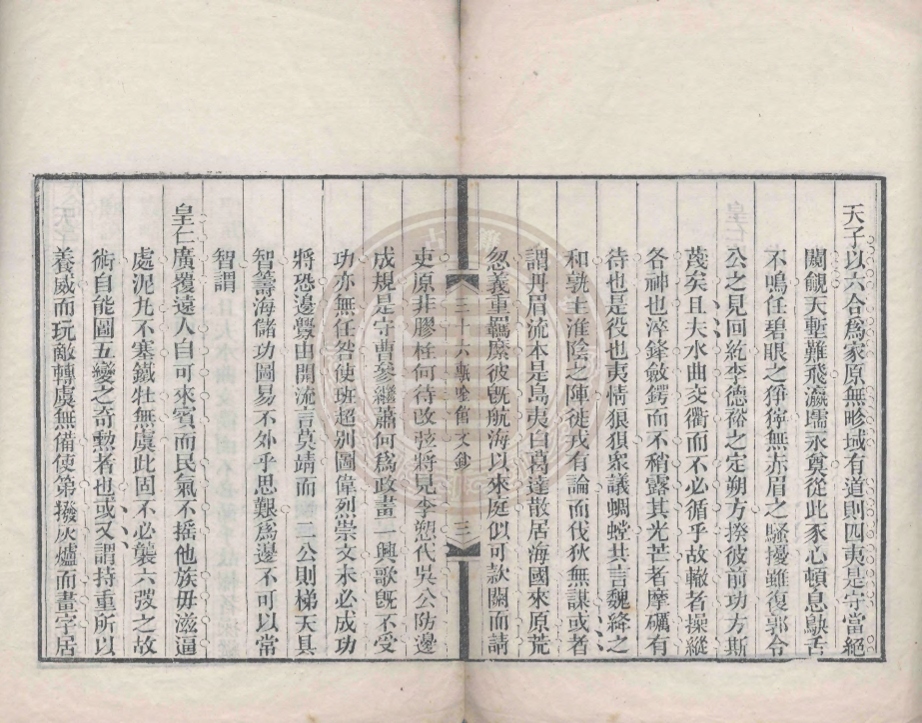 天子以六合爲家原無畛域有道則四夷是守當絕
闚覦天塹難飛瀛壖永奠從此豕心頓息鴃舌
不鳴任碧眼之猙獰無赤眉之騷擾雖復郭令
公之見回紇李德裕之定朔方揆彼前功方斯
蔑矣且夫水曲交衢而不必循乎故轍者操縱
各神也淬鋒斂鍔而不稍露其光芒者摩礪有
待也是役也夷情狼狽衆議蜩螗共言魏絳之
和孰主淮陰之陣徙戎有論而伐狄無謀或者
謂丹眉流本是島夷白葛達散居海國來原荒
忽義重羈縻彼旣航海以來庭似可款關而請
三十六 唫舘文鈔 三
吏原非膠柱何待改弦將見李愬代吳公防邊
成規是守曹參繼蕭何爲政畫一興歌旣不受
功亦無任咎使班超别圖偉烈崇文未必成功
將恐邊釁由開流言莫靖而 二公則梯天具
智籌海儲功圖易不外乎思艱爲邊不可以常
智謂
皇仁廣覆遠人自可來賓而民氣不搖他族毋滋逼
處泥九不塞鐵牡無虞此固不必襲六弢之故
術自能圖五變之奇勲者也或又謂持重所以
養威而玩敵轉虞無備使第撥灰爐而畫字居